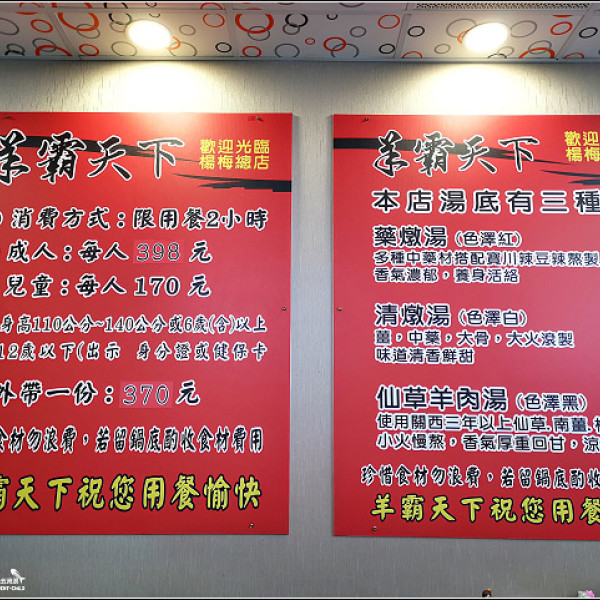 羊霸天下
歡迎光臨
楊梅總店
消費方式：限用餐2小時
成人：每人 398 元
兒童：每人 170 元
身高110公分~140公分或6歲(含)以上
12歲以下(出示 身分證或健保卡
外帶一份：370元
食材勿浪費，若留鍋底酌收食材費用
霸天下祝您用餐愉快
羊霸天下
歡迎光
楊梅總
本店湯底有三種
藥燉湯（色澤紅）
多種中藥材搭配寶川辣豆辣熬製
香氣濃郁，養身活絡
清燉湯（色澤白）
薑，中藥，大骨，大火滾製
味道清香鮮甜
仙草羊肉湯（色澤黑）
使用關西三年以上仙草.南薑.
小火慢熬，香氣厚重回甘，涼
珍惜食材勿浪費，若留鍋底酌收
羊霸天下祝您用餐